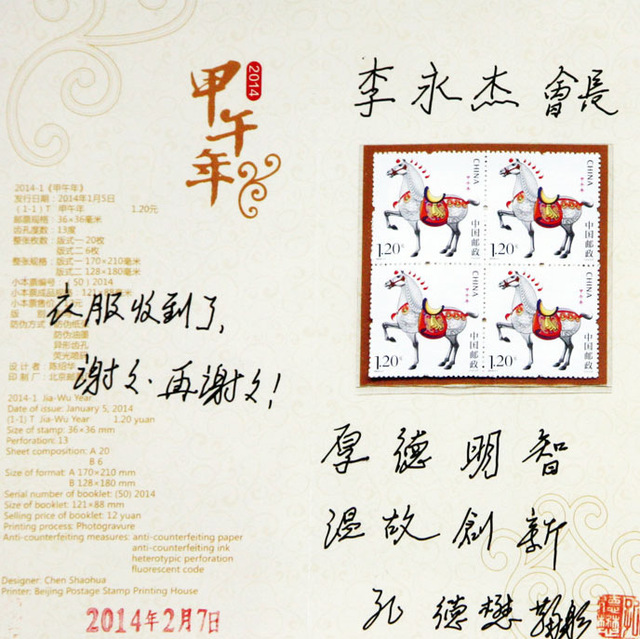 2014
甲午年
2014-1《甲午年》
发行日期：2014年1月5日
(1-1) T 甲午年 1.20元
邮票规格：36×36毫米
齿孔度数：13度
整张枚数：版式一 20枚
版式二 6枚
整张规格：版式一 170×210毫米
版式二 128×180毫米
小本票编号
(50) 2014
小本票成品规格：121×88毫米
小本票售价
防伪方式：防伪纸
防伪油墨
异形齿孔
荧光喷码
设计者：陈绍华
印制厂：北京邮
2014-1 Jia-Wu Year
Date of issue: January 5, 2014
(1-1) T Jia-Wu Year 1.20 yuan
Size of stamp: 36×36 mm
Perforation: 13
Sheet composition: A 20
B 6
Size of format: A 170×210 mm
B 128×180 mm
Serial number of booklet: (50) 2014
Size of booklet: 121×88 mm
Selling price of booklet: 12 yuan
Printing process: Photogravure
Anti-counterfeiting measures: anti-counterfeiting paper
anti-counterfeiting ink
heterotypic perforation
fluorescent code
Designer: Chen Shaohua
Printer: Beijing Postage Stamp Printing House
衣服收到了,
谢文·再谢文!
2014年2月7日
李永杰會長
CHINA
中国邮政
1.20元
CHINA
中国邮政
1.20元
CHINA
中国邮政
1.20元
CHINA
中国邮政
1.20元
厚德明智
温故創新
孔德懋